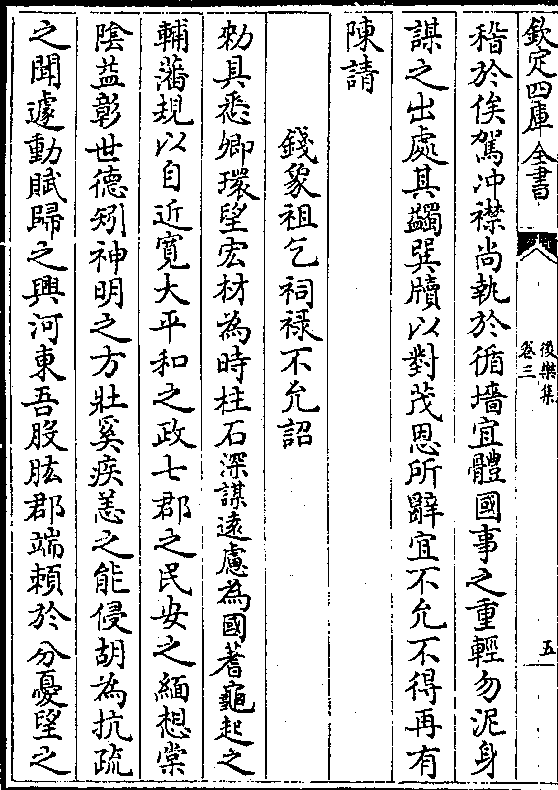 欽定四庫全書
後樂集
卷三
五
稽於俟駕沖襟尚執於循墻宜體國事之重輕勿泥身
謀之出處其蠲巽牘以對茂恩所辭宜不允不得再有
陳請
錢象祖乞祠祿不允詔
勑具悉卿瓌望宏材為時柱石深謀遠慮為國蓍龜起之
輔藩規以自近寛大平和之政七郡之民安之緬想棠
陰益彰世德矧神明之方壯奚疾恙之能侵胡為抗疏
之聞遽動賦歸之興河東吾股肱郡端頼於分憂望之